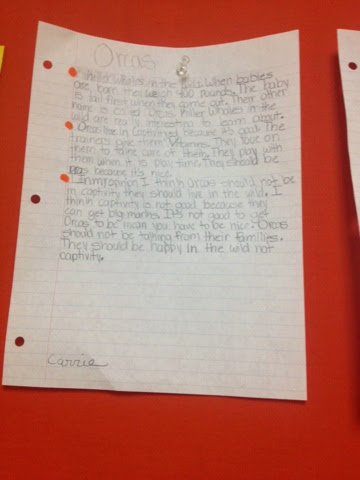 Orcas
Killer Whales in the wild. When babies
are born they weigh 400 pounds. The baby
is tail first when they come out. Their other
name is called Orcas. Killer Whales in the
wild are really interesting to learn about.
Orcas live in captivity because it's good. The
trainers give them vitamins. They love on
them to take care of them. They play with
them when it is play time. They should be
because it's nice.
In my opinion I think Orcas should not be
in captivity they should live in the wild. I
think captivity is not good because they
can get big marks. It's not good to get
Orcas to be mean you have to be nice. Orcas
should not be taking from their families.
They should be happy in the wild not
captivity.
Carrie